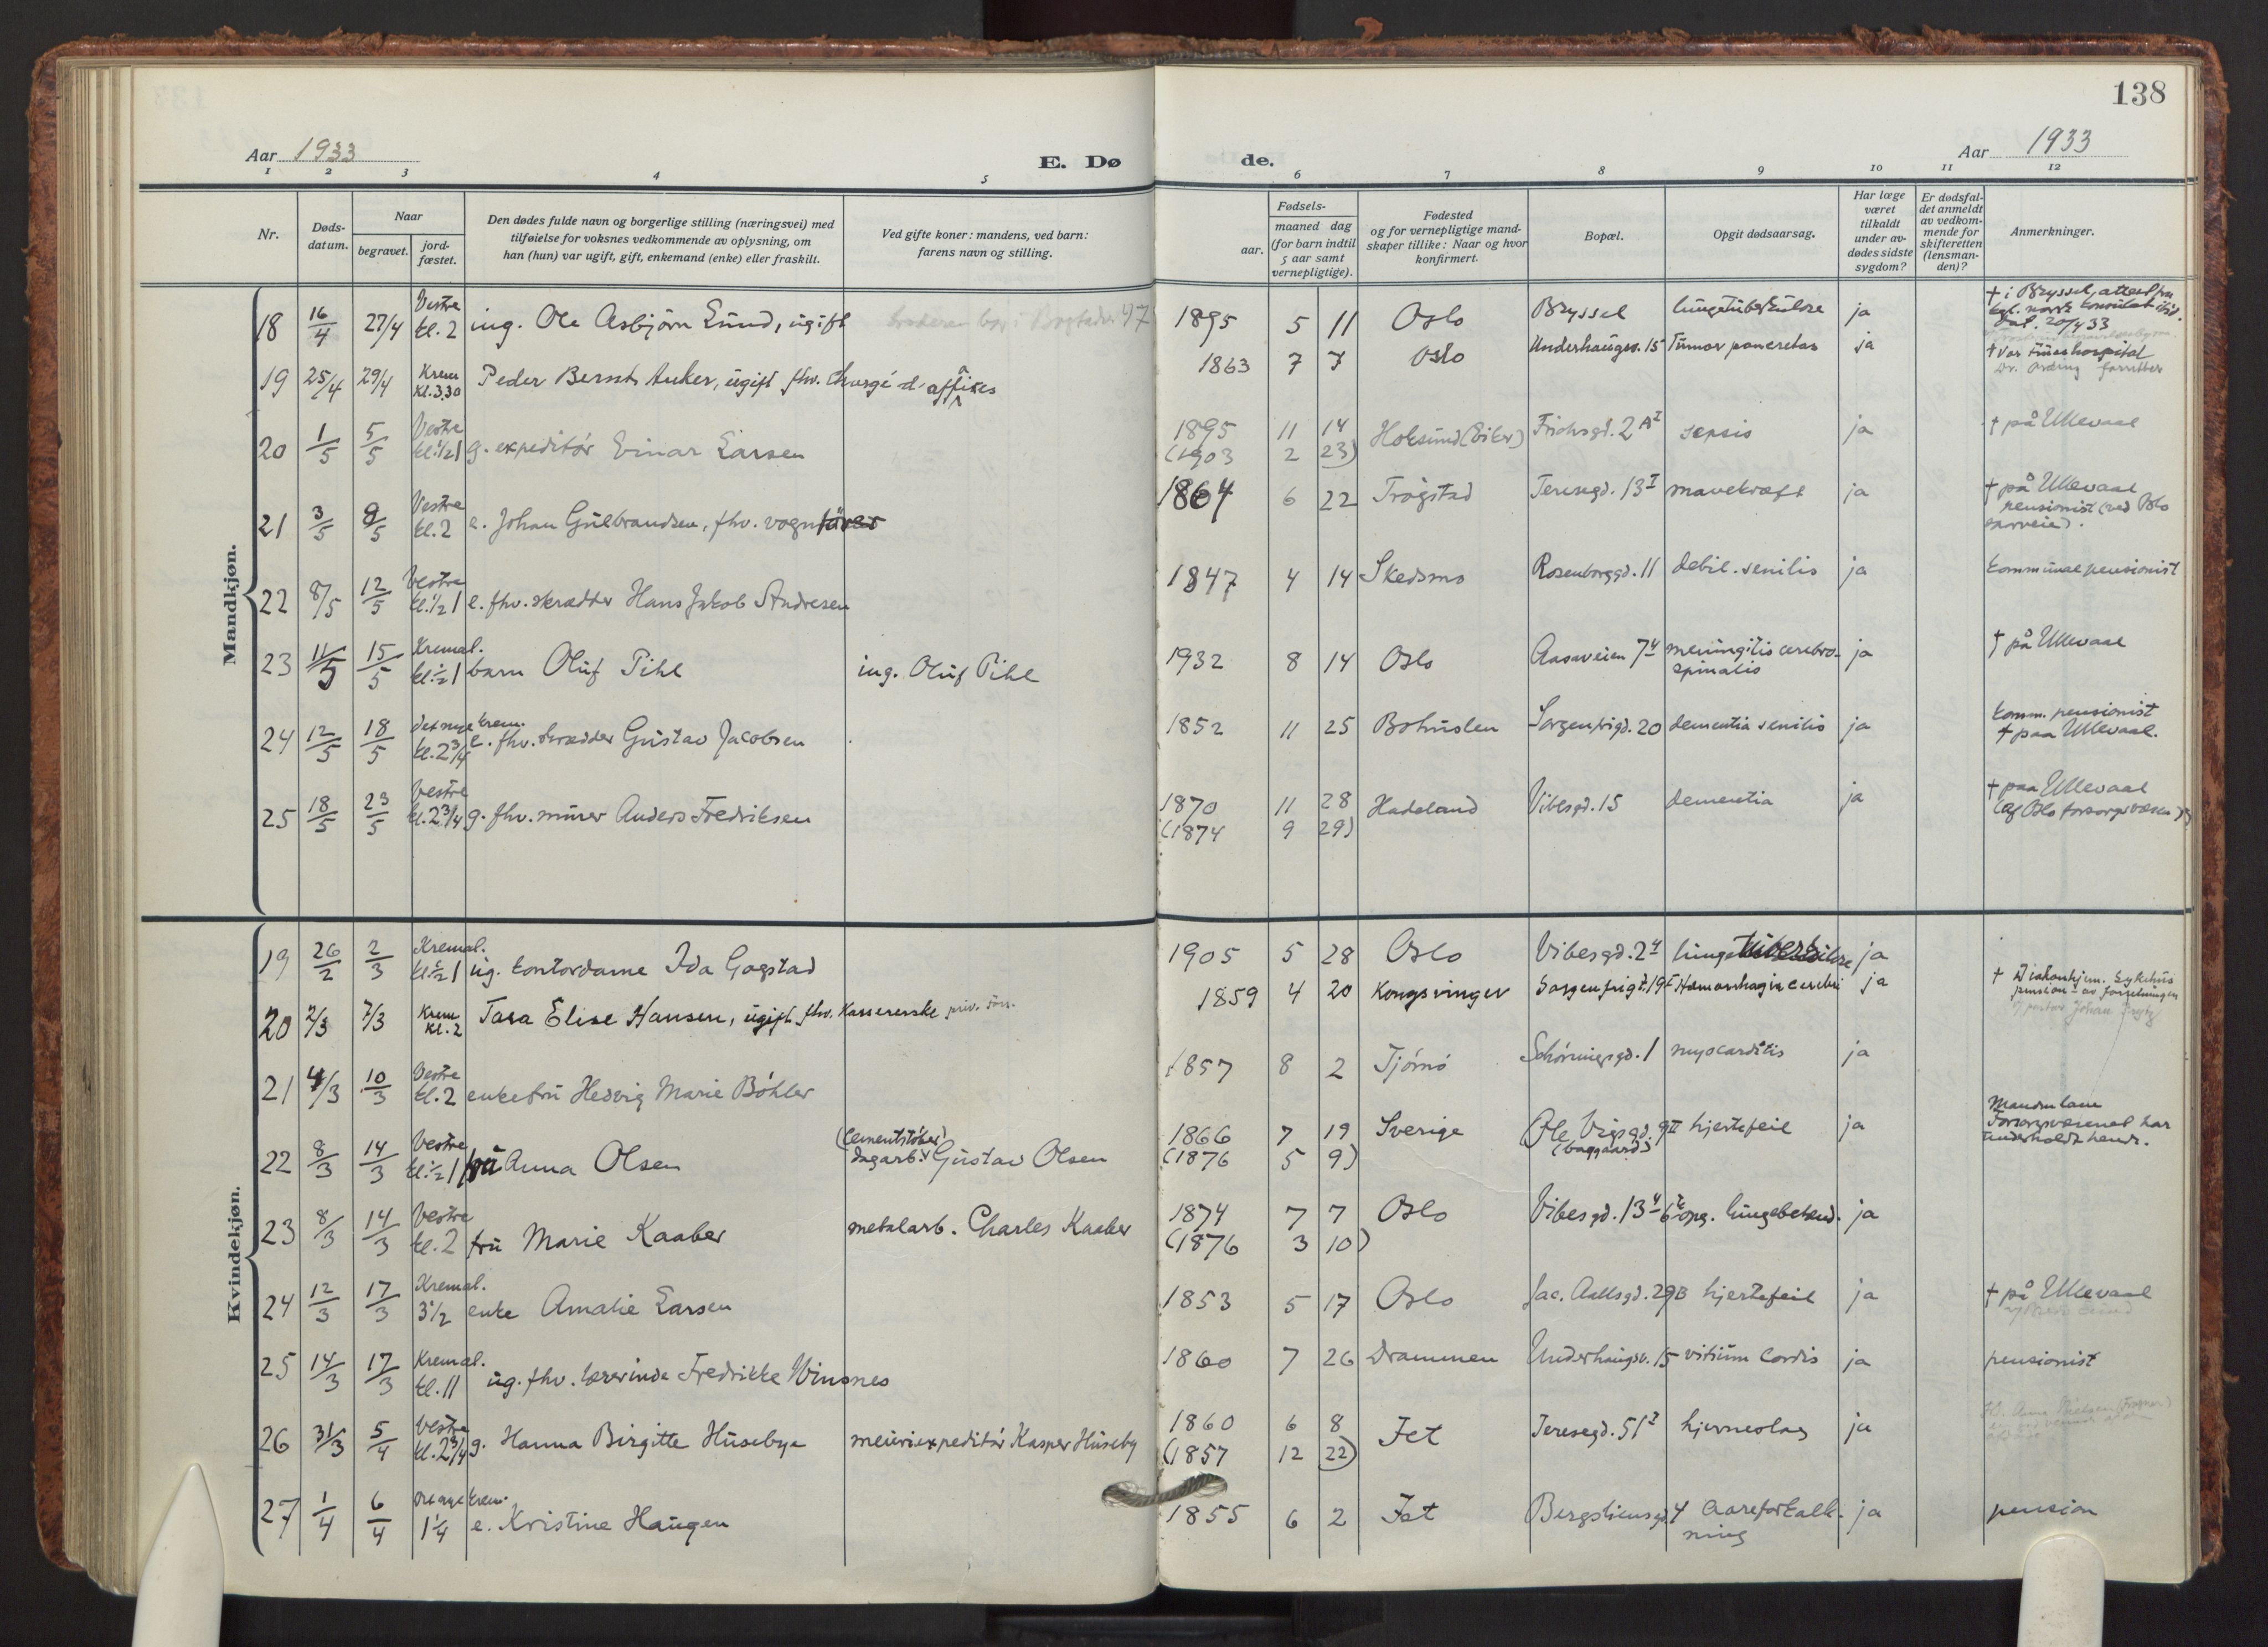 138
Aar 1933
E. Dø
de.
Aar 1933
1 2 3 4 5 6 7 8 9 10 11 12
Nr.
Døds-
datum.
Naar
begravet.
jord-
fæstet.
Den dødes fulde navn og borgerlige stilling (næringsvei) med
tilføielse for voksnes vedkommende av oplysning, om
han (hun) var ugift, gift, enkemand (enke) eller fraskilt.
Ved gifte koner: mandens, ved barn:
farens navn og stilling.
Fødsels-
aar.
maaned dag
(for barn indtil
5 aar samt
vernepligtige).
Fødested
og for vernepligtige mand-
skaper tillike: Naar og hvor
konfirmert.
Bopæl.
Opgit dødsaarsag.
Har læge
været
tilkaldt
under av-
dødes sidste
sygdom?
Er dødsfal-
det anmeldt
av vedkom-
mende for
skifteretten
(lensman-
den)?
Anmerkninger.
Mandkjøn.
18 16/4 27/4 Vestre kl. 2 ing. Ole Asbjørn Lund, ugift 1895 5 11 Oslo Bryssel lungetuberkulose ja † i Bryssel, attest fra
kgl. norsk konsulat
dat. 20/4 33
19 25/4 29/4 Krem kl. 3.30 Peder Bernt Anker, ugift fhv. chargé d'affaires 1863 7 7 Oslo Underhaugsv. 15 Tumor pancreas ja † Vor Frues hospital
20 1/5 5/5 Vestre kl. ½1 g. expeditør Einar Larsen 1895 11 14 Hoksund (Eiker) Frichsgd. 2 A I sepsis ja † på Ullevaal
(1903 2 23)
21 3/5 9/5 Vestre kl. 2 e. Johan Gulbrandsen, fhv. vognfører 1864 6 22 Trøgstad Teresegd. 13 I mavekræft ja † på Ullevaal
pensionist (ved Oslo
sporveie).
22 8/5 12/5 Vestre kl. ½1 e. fhv. skrædder Hans Jakob Andresen 1847 4 14 Skedsmo Rosenborggd. 11 debil. senilis ja kommunal pensionist
23 11/5 15/5 Kremat. kl. ½1 barn Oluf Pihl ing. Oluf Pihl 1932 8 14 Oslo Aasaveien 7 4 meningitis cerebro-
spinalis ja † på Ullevaal
24 12/5 18/5 Det nye krem. kl. 2¾ e. fhv. skrædder Gustav Jacobsen 1852 11 25 Bohuslen Sorgenfrigd. 20 dementia senilis ja komm. pensionist
† paa Ullevaal.
25 18/5 23/5 Vestre kl. 2¾ g. fhv. murer Anders Fredriksen 1870 11 28 Hadeland Vibesgd. 15 dementia ja † paa Ullevaal
(af Oslo forsorgsvæsen)
(1874 9 29)
Kvindekjøn.
19 26/2 2/3 Kremat. kl. ½1 ug. kontordame Ida Gogstad 1905 5 28 Oslo Vibesgd. 2 4 lungetuberkulose ja
20 2/3 7/3 Krem kl. 2 Tara Elise Hansen, ugift fhv. Kassererske 1859 4 20 Kongsvinger Sorgenfrigt. 19 I Hæmorrhagia cerebri ja † Diakonhjem. Sykehus
21 4/3 10/3 Vestre kl. 2 enkefru Hedvig Marie Böhler 1857 8 2 Tjømø Schøningsgd. 1 myocarditis ja
22 8/3 14/3 Vestre kl. ½1 fru Anna Olsen (Cementstøber)
dagarb. Gustav Olsen 1866 7 19 Sverige Ole Vigsgd. 9 II
(baggaard) hjertefeil ja Manden lam
Forsorgsvæsenet har
underholdt hende.
(1876 5 9)
23 8/3 14/3 Vestre kl. 2 fru Marie Kaaber metalarb. Charles Kaaber 1874 7 7 Oslo Vibesgd. 13 4 lungebetænd. ja
(1876 3 10)
24 12/3 17/3 Kremat. 3½ enke Amalie Larsen 1853 5 17 Oslo Jac. Aallsgd. 29B hjertefeil ja † på Ullevaal
25 14/3 17/3 Kremat. kl. 11 ug. fhv. lærerinde Fredrikke Winsnes 1860 7 26 Drammen Underhaugsv. 15 vitium Cordis ja pensionist
26 31/3 5/4 Vestre kl. 2¾ g. Hanna Birgitte Huseby meieriexpeditør Kasper Huseby 1860 6 8 Fet Teresegd. 51 I hjerneslag ja
(1857 12 22)
27 1/4 6/4 Det nye krem. 1¼ e. Kristine Haugen 1855 6 2 Fet Bergsliensgd. 4 Aareforkalk-
ning ja pension